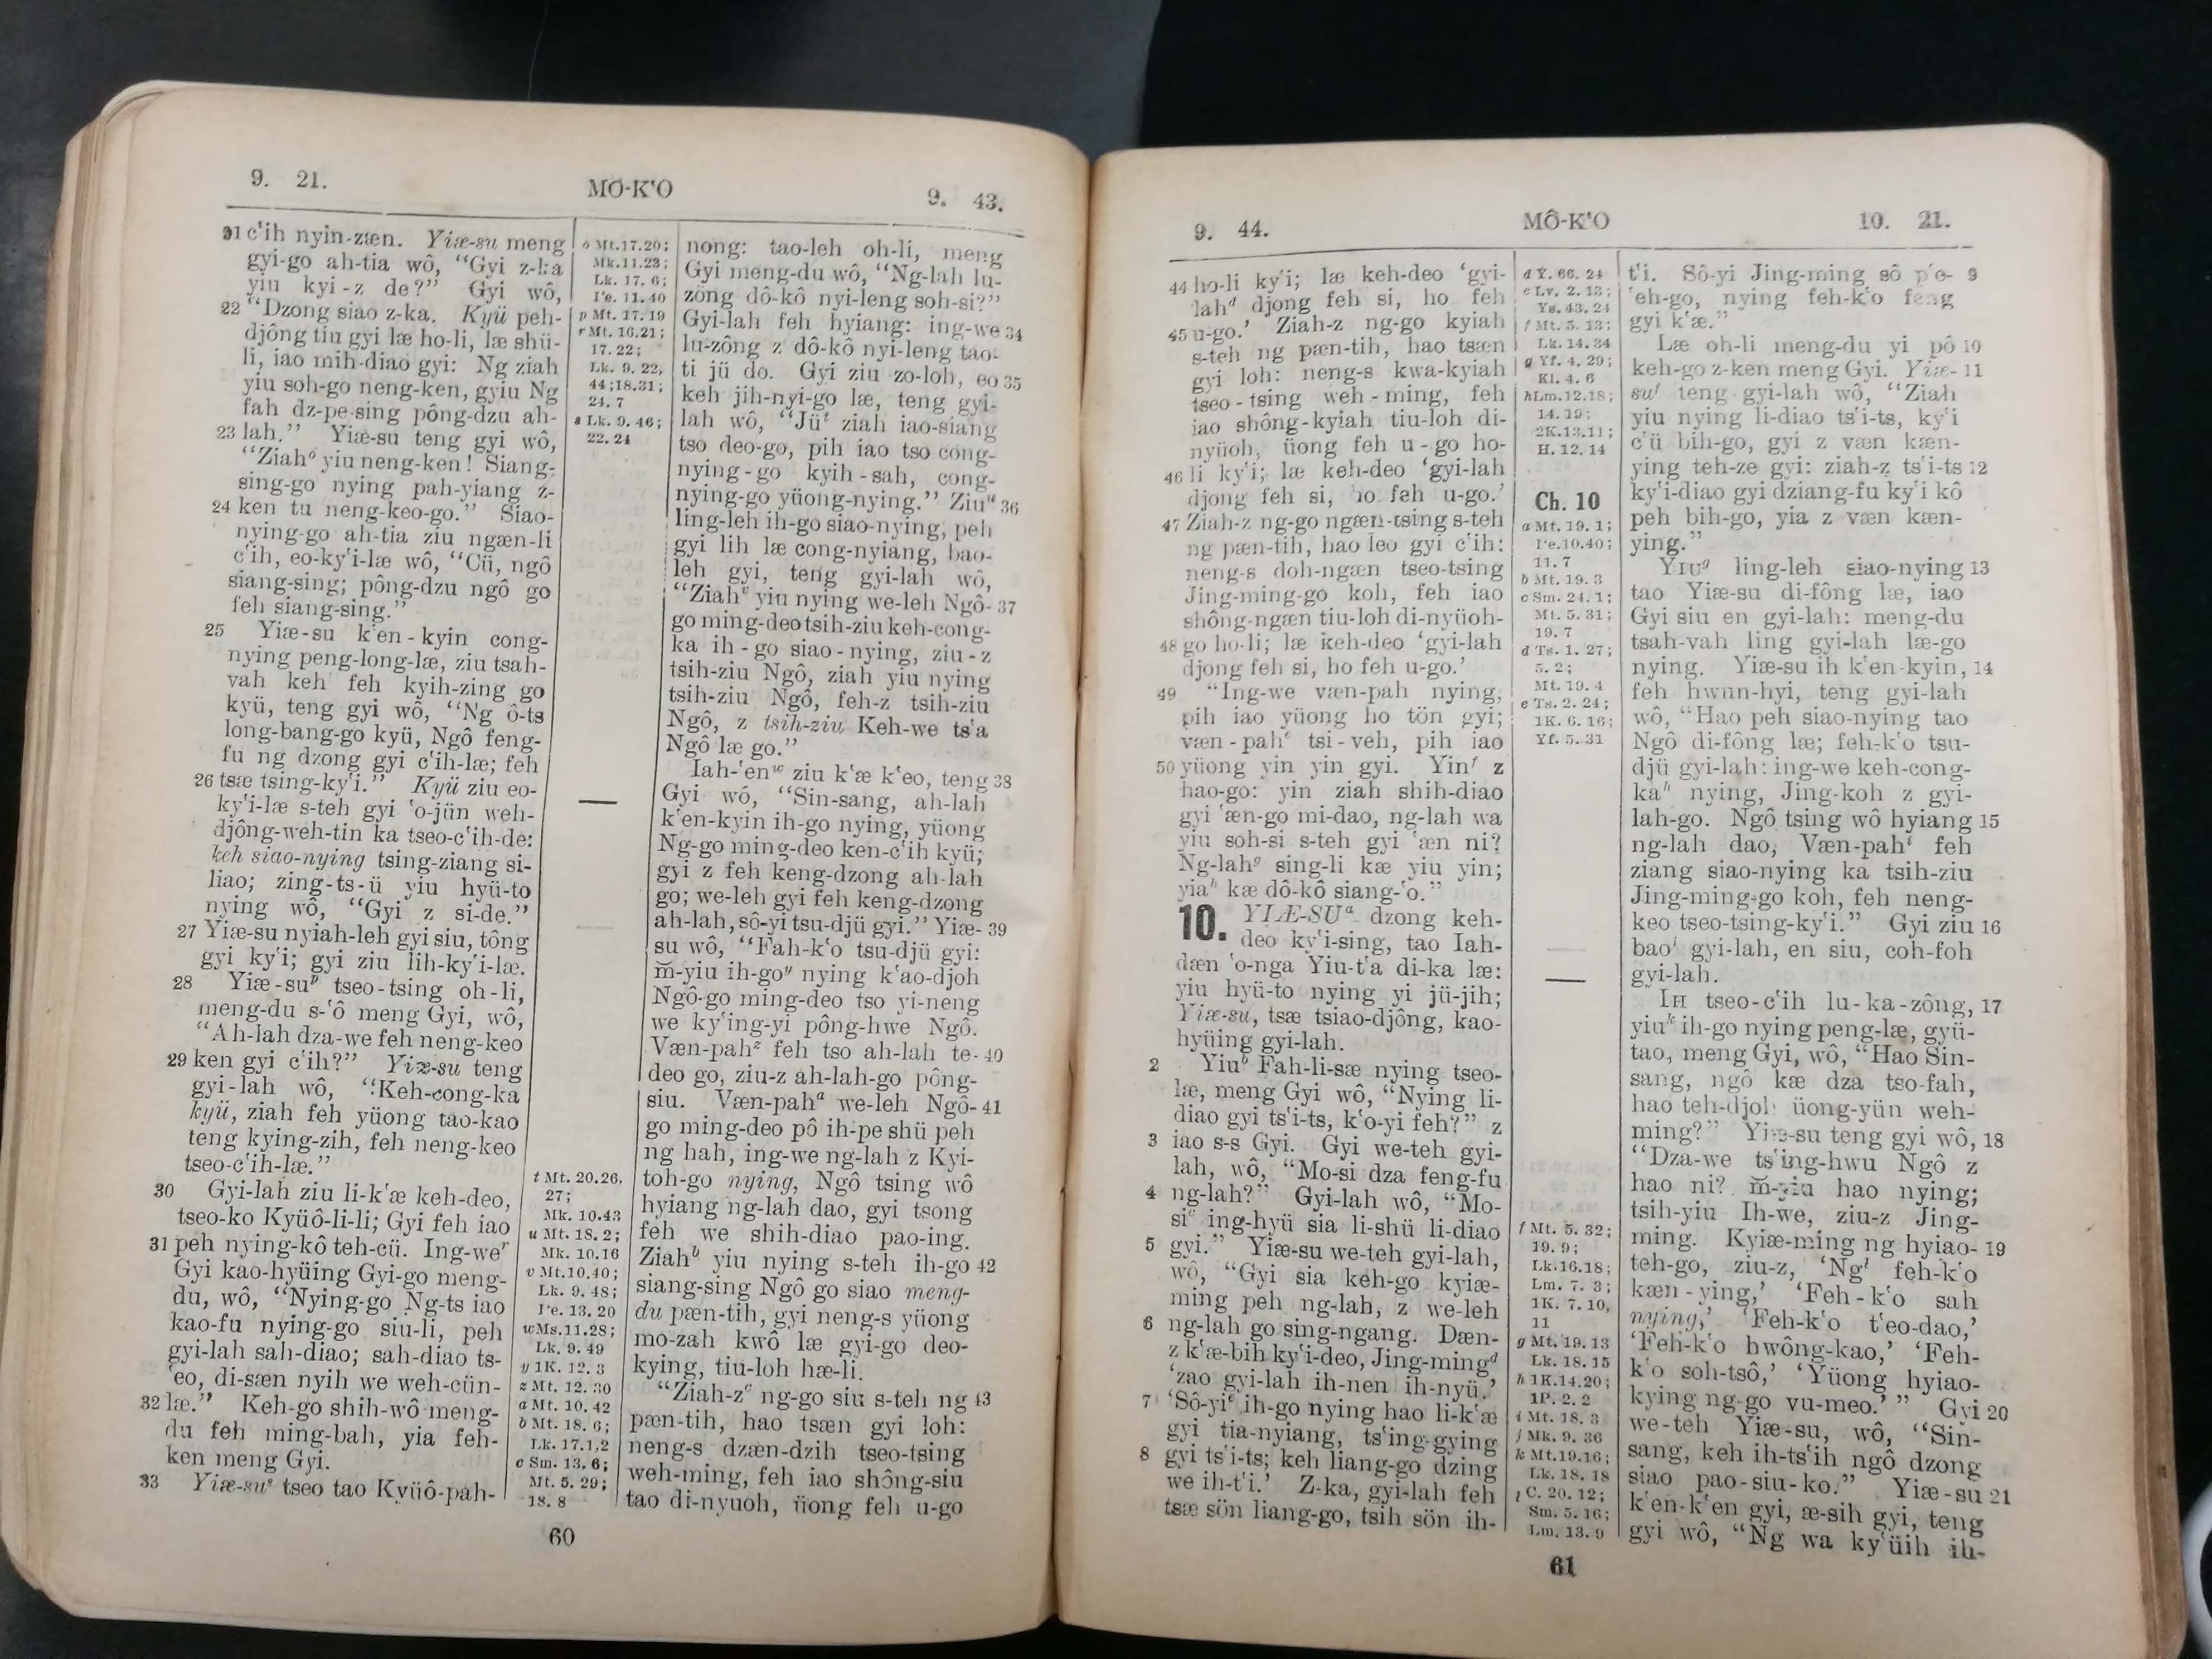 9. 21.
MÔ-K'O
9. 43.
21 c'ih nyin-zæn. Yiæ-su meng
gyi-go ah-tia wô, “Gyi z-ka
yiu kyi-z de?” Gyi wô,
22 “Dzong siao z-ka. Kyü peh-
djông tiu gyi læ ho-li, læ shü-
li, iao mih-diao gyi: Ng ziah
yiu soh-go neng-ken, gyiu Ng
fah dz-pe-sing pông-dzu ah-
23 lah.” Yiæ-su teng gyi wô,
“Ziaho yiu neng-ken! Siang-
sing-go nying pah-yiang z-
24 ken tu neng-keo-go.” Siao-
nying-go ah-tia ziu ngæn-li
c'ih, eo-ky'i-læ wô, “Cü, ngô
siang-sing; pông-dzu ngô go
feh siang-sing.”
25 Yiæ-su k'en-kyin cong-
nying peng-long-læ, ziu tsah-
vah keh feh kyih-zing go
kyü, teng gyi wô, “Ng ô-ts
long-bang-go kyü, Ngô feng-
fu ng dzong gyi c'ih-læ; feh
26 tsæ tsing-ky'i.” Kyü ziu eo-
ky'i-læ s-teh gyi 'o-jün weh-
djông-weh-tin ka tseo-c'ih-de:
keh siao-nying tsing-ziang si-
liao; zing-ts-ü yiu hyü-to
nying wô, “Gyi z si-de.”
27 Yiæ-su nyiah-leh gyi siu, tông
gyi ky'i; gyi ziu lih-ky'i-læ.
28 Yiæ-sup tseo-tsing oh-li,
meng-du s-'ô meng Gyi, wô,
“Ah-lah dza-we feh neng-keo
29 ken gyi c'ih?” Yiæ-su teng
gyi-lah wô, “Keh-cong-ka
kyü, ziah feh yüong tao-kao
teng kying-zih, feh neng-keo
tseo-c'ih-læ.”
30 Gyi-lah ziu li-k'æ keh-deo,
tseo-ko Kyüô-li-li; Gyi feh iao
31 peh nying-kô teh-cü. Ing-wer
Gyi kao-hyüing Gyi-go meng-
du, wô, “Nying-go Ng-ts iao
kao-fu nying-go siu-li, peh
gyi-lah sah-diao; sah-diao ts-
'eo, di-sæn nyih we weh-cün-
32 læ.” Keh-go shih-wô meng-
du feh ming-bah, yia feh-
ken meng Gyi.
33 Yiæ-sus tseo tao Kyüô-pah-
o Mt.17.20;
Mk.11.23;
Lk. 17. 6;
I'e. 11. 40
p Mt. 17. 19
r Mt. 16.21;
17. 22;
Lk. 9. 22,
44;18.31;
24. 7
s Lk. 9. 46;
22. 24
t Mt. 20.26,
27;
Mk. 10.43
u Mt. 18. 2;
Mk. 10.16
v Mt.10.40;
Lk. 9. 48;
I'e. 13. 20
w Ms.11.28;
Lk. 9. 49
y 1K. 12. 3
z Mt. 12. 30
a Mt. 10. 42
b Mt. 18. 6;
Lk. 17.1,2
c Sm. 13. 6;
Mt. 5. 29;
18. 8
nong: tao-leh oh-li, meng
Gyi meng-du wô, “Ng-lah lu-
zông dô-kô nyi-leng soh-si?”
Gyi-lah feh hyiang: ing-we 34
lu-zông z dô-kô nyi-leng tao-
ti jü do. Gyi ziu zo-loh, eo 35
keh jih-nyi-go læ, teng gyi-
lah wô, “Jüt ziah iao-siang
tso deo-go, pih iao tso cong-
nying-go kyih-sah, cong-
nying-go yüong-nying.” Ziuu 36
ling-leh ih-go siao-nying, peh
gyi lih læ cong-nyiang, bao-
leh gyi, teng gyi-lah wô,
“Ziahv yiu nying we-leh Ngô- 37
go ming-deo tsih-ziu keh-cong-
ka ih-go siao-nying, ziu-z
tsih-ziu Ngô, ziah yiu nying
tsih-ziu Ngô, feh-z tsih-ziu
Ngô, z tsih-ziu Keh-we ts'a
Ngô læ go.”
Iah-'enw ziu k'æ k'eo, teng 38
Gyi wô, “Sin-sang, ah-lah
k'en-kyin ih-go nying, yüong
Ng-go ming-deo ken-c'ih kyü;
gyi z feh keng-dzong ah-lah
go; we-leh gyi feh keng-dzong
ah-lah, sô-yi tsu-djü gyi.” Yiæ- 39
su wô, “Fah-k'o tsu-djü gyi:
m̆-yiu ih-goy nying k'ao-djoh
Ngô-go ming-deo tso yi-neng
we ky'ing-yi pông-hwe Ngô.
Væn-pahz feh tso ah-lah te- 40
deo go, ziu-z ah-lah-go pông-
siu. Væn-paha we-leh Ngô- 41
go ming-deo pô ih-pe shü peh
ng hah, ing-we ng-lah z Kyi-
toh-go nying, Ngô tsing wô
hyiang ng-lah dao, gyi tsong
feh we shih-diao pao-ing.
Ziahb yiu nying s-teh ih-go 42
siang-sing Ngô go siao meng-
du pæn-tih, gyi neng-s yüong
mo-zah kwô læ gyi-go deo-
kying, tiu-loh hæ-li.
“Ziah-zc ng-go siu s-teh ng 43
pæn-tih, hao tsæn gyi loh:
neng-s dzæn-dzih tseo-tsing
weh-ming, feh iao shông-siu
tao di-nyüoh, üong feh u-go
60
9. 44.
MÔ-K'O
10. 21.
44 ho-li ky'i; læ keh-deo 'gyi-
lahd djong feh si, ho feh
45 u-go.' Ziah-z ng-go kyiah
s-teh ng pæn-tih, hao tsæn
gyi loh: neng-s kwa-kyiah
tseo-tsing weh-ming, feh
iao shông-kyiah tiu-loh di-
nyüoh, üong feh u-go ho-
46 li ky'i; læ keh-deo 'gyi-lah
djong feh si, ho feh u-go.'
47 Ziah-z ng-go ngæn-tsing s-teh
ng pæn-tih, hao leo gyi c'ih:
neng-s doh-ngæn tseo-tsing
Jing-ming-go koh, feh iao
shông-ngæn tiu-loh di-nyüoh-
48 go ho-li; læ keh-deo 'gyi-lah
djong feh si, ho feh u-go.'
49 “Ing-we væn-pah nying,
pih iao yüong ho tön gyi;
væn-pahe tsi-veh, pih iao
50 yüong yin yin gyi. Yinf z
hao-go: yin ziah shih-diao
gyi 'æn-go mi-dao, ng-lah wa
yiu soh-si s-teh gyi 'æn ni?
Ng-lahg sing-li kæ yiu yin;
yiah kæ dô-kô siang-'o.”
10. YIÆ-SUa dzong keh-
deo ky'i-sing, tao Iah-
dæn 'o-nga Yiu-t'a di-ka læ:
yiu hyü-to nying yi jü-jih;
Yiæ-su, tsæ tsiao-djông, kao-
hyüing gyi-lah.
2 Yiub Fah-li-sæ nying tseo-
læ, meng Gyi wô, “Nying li-
diao gyi ts'i-ts, k'o-yi feh?” z
3 iao s-s Gyi. Gyi we-teh gyi-
lah, wô, “Mo-si dza feng-fu
4 ng-lah?” Gyi-lah wô, “Mo-
sic ing-hyü sia li-shü li-diao
5 gyi.” Yiæ-su we-teh gyi-lah,
wô, “Gyi sia keh-go kyiæ-
ming peh ng-lah, z we-leh
6 ng-lah go sing-ngang. Dæn-
z k'æ-bih ky'i-deo, Jing-mingd
'zao gyi-lah ih-nen ih-nyü.'
7 'Sô-yie ih-go nying hao li-k'æ
gyi tia-nyiang, ts'ing-gying
8 gyi ts'i-ts; keh liang-go dzing
we ih-t'i.' Z-ka, gyi-lah feh
tsæ sön liang-go, tsih sön ih-
d Y. 66. 24
e Lv. 2. 13;
Ys. 43. 24
f Mt. 5. 13;
Lk. 14.34
g Yf. 4. 29;
Kl. 4. 6
h Lm.12.18;
14. 19;
2K.13.11;
H. 12. 14
Ch. 10
a Mt. 19. 1;
I'e.10.40;
11. 7
b Mt. 19. 3
c Sm. 24. 1;
Mt. 5. 31;
19. 7
d Ts. 1. 27;
5. 2;
Mt. 19. 4
e Ts. 2. 24;
1K. 6. 16;
Yf. 5. 31
f Mt. 5. 32;
19. 9;
Lk.16.18;
Lm. 7. 3;
1K. 7. 10,
11
g Mt. 19. 13
Lk. 18. 15
h 1K.14.20;
1P. 2. 2
i Mt. 18. 3
j Mk. 9. 36
k Mt.19.16;
Lk. 18. 18
l C. 20. 12;
Sm. 5. 16;
Lm. 13. 9
t'i. Sô-yi Jing-ming sô p'e- 9
'eh-go, nying feh-k'o feng
gyi k'æ.”
Læ oh-li meng-du yi pô 10
keh-go z-ken meng Gyi. Yiæ- 11
suf teng gyi-lah wô, “Ziah
yiu nying li-diao ts'i-ts, ky'i
c'ü bih-go, gyi z væn kæn-
ying teh-ze gyi: ziah-z ts'i-ts 12
ky'i-diao gyi dziang-fu ky'i kô
peh bih-go, yia z væn kæn-
ying.”
YIUg ling-leh siao-nying 13
tao Yiæ-su di-fông læ, iao
Gyi siu en gyi-lah: meng-du
tsah-vah ling gyi-lah læ-go
nying. Yiæ-su ih k'en-kyin, 14
feh hwun-hyi, teng gyi-lah
wô, “Hao peh siao-nying tao
Ngô di-fông læ; feh-k'o tsu-
djü gyi-lah: ing-we keh-cong-
kah nying, Jing-koh z gyi-
lah-go. Ngô tsing wô hyiang 15
ng-lah dao, Væn-pahi feh
ziang siao-nying ka tsih-ziu
Jing-ming-go koh, feh neng-
keo tseo-tsing-ky'i.” Gyi ziu 16
baoj gyi-lah, en siu, coh-foh
gyi-lah.
IH tseo-c'ih lu-ka-zông, 17
yiuk ih-go nying peng-læ, gyü-
tao, meng Gyi, wô, “Hao Sin-
sang, ngô kæ dza tso-fah,
hao teh-djoh üong-yün weh-
ming?” Yiæ-su teng gyi wô, 18
“Dza-we ts'ing-hwu Ngô z
hao ni? m̆-yiu hao nying;
tsih-yiu Ih-we, ziu-z Jing-
ming. Kyiæ-ming ng hyiao- 19
teh-go, ziu-z, 'Ngl feh-k'o
kæn-ying,' 'Feh-k'o sah
nying,' 'Feh-k'o t'eo-dao,'
'Feh-k'o hwông-kao,' 'Feh-
k'o soh-tsô,' 'Yüong hyiao-
kying ng-go vu-meo.' ” Gyi 20
we-teh Yiæ-su, wô, “Sin-
sang, keh ih-ts'ih ngô dzong
siao pao-siu-ko.” Yiæ-su 21
k'en-k'en gyi, æ-sih gyi, teng
gyi wô, “Ng wa ky'üih ih-
61